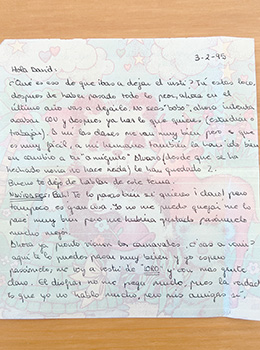 3-2-95
Hola David:
¿Qué es eso de que ibas a dejar el insti? Tú estás loco,
después de haber pasado todo lo peor, ahora en el
último año vas a dejarlo. No seas "bobo", ahora intenta
acabar COU y después ya harás lo que quieras (estudiar o
trabajar). A mi las clases me van muy bien pero es que
es muy fácil, a mi hermana también la han ido bien
en cambio a mi "amiguito" Alvaro (desde que se ha
no hace nada) le han quedado 2.
Bueno te dejo de hablar de este tema.
: Bah! Te lo pasas bien si quieres ¡claro! pero
tampoco es gran cosa. Yo no me puedo quejar me lo
pasé muy bien pero me hubiera gustado pasármelo
mucho mejor.
Ahora ya pronto vienen los carnavales, ¿vas a venir?
aquí te lo puedes pasar muy bien y yo espero
pasármelo, me voy a vestir de "ORO" y con más gente
claro. El disfraz no me pega mucho, pero la verdad
es que yo no hablo mucho, pero mis amigas sí,